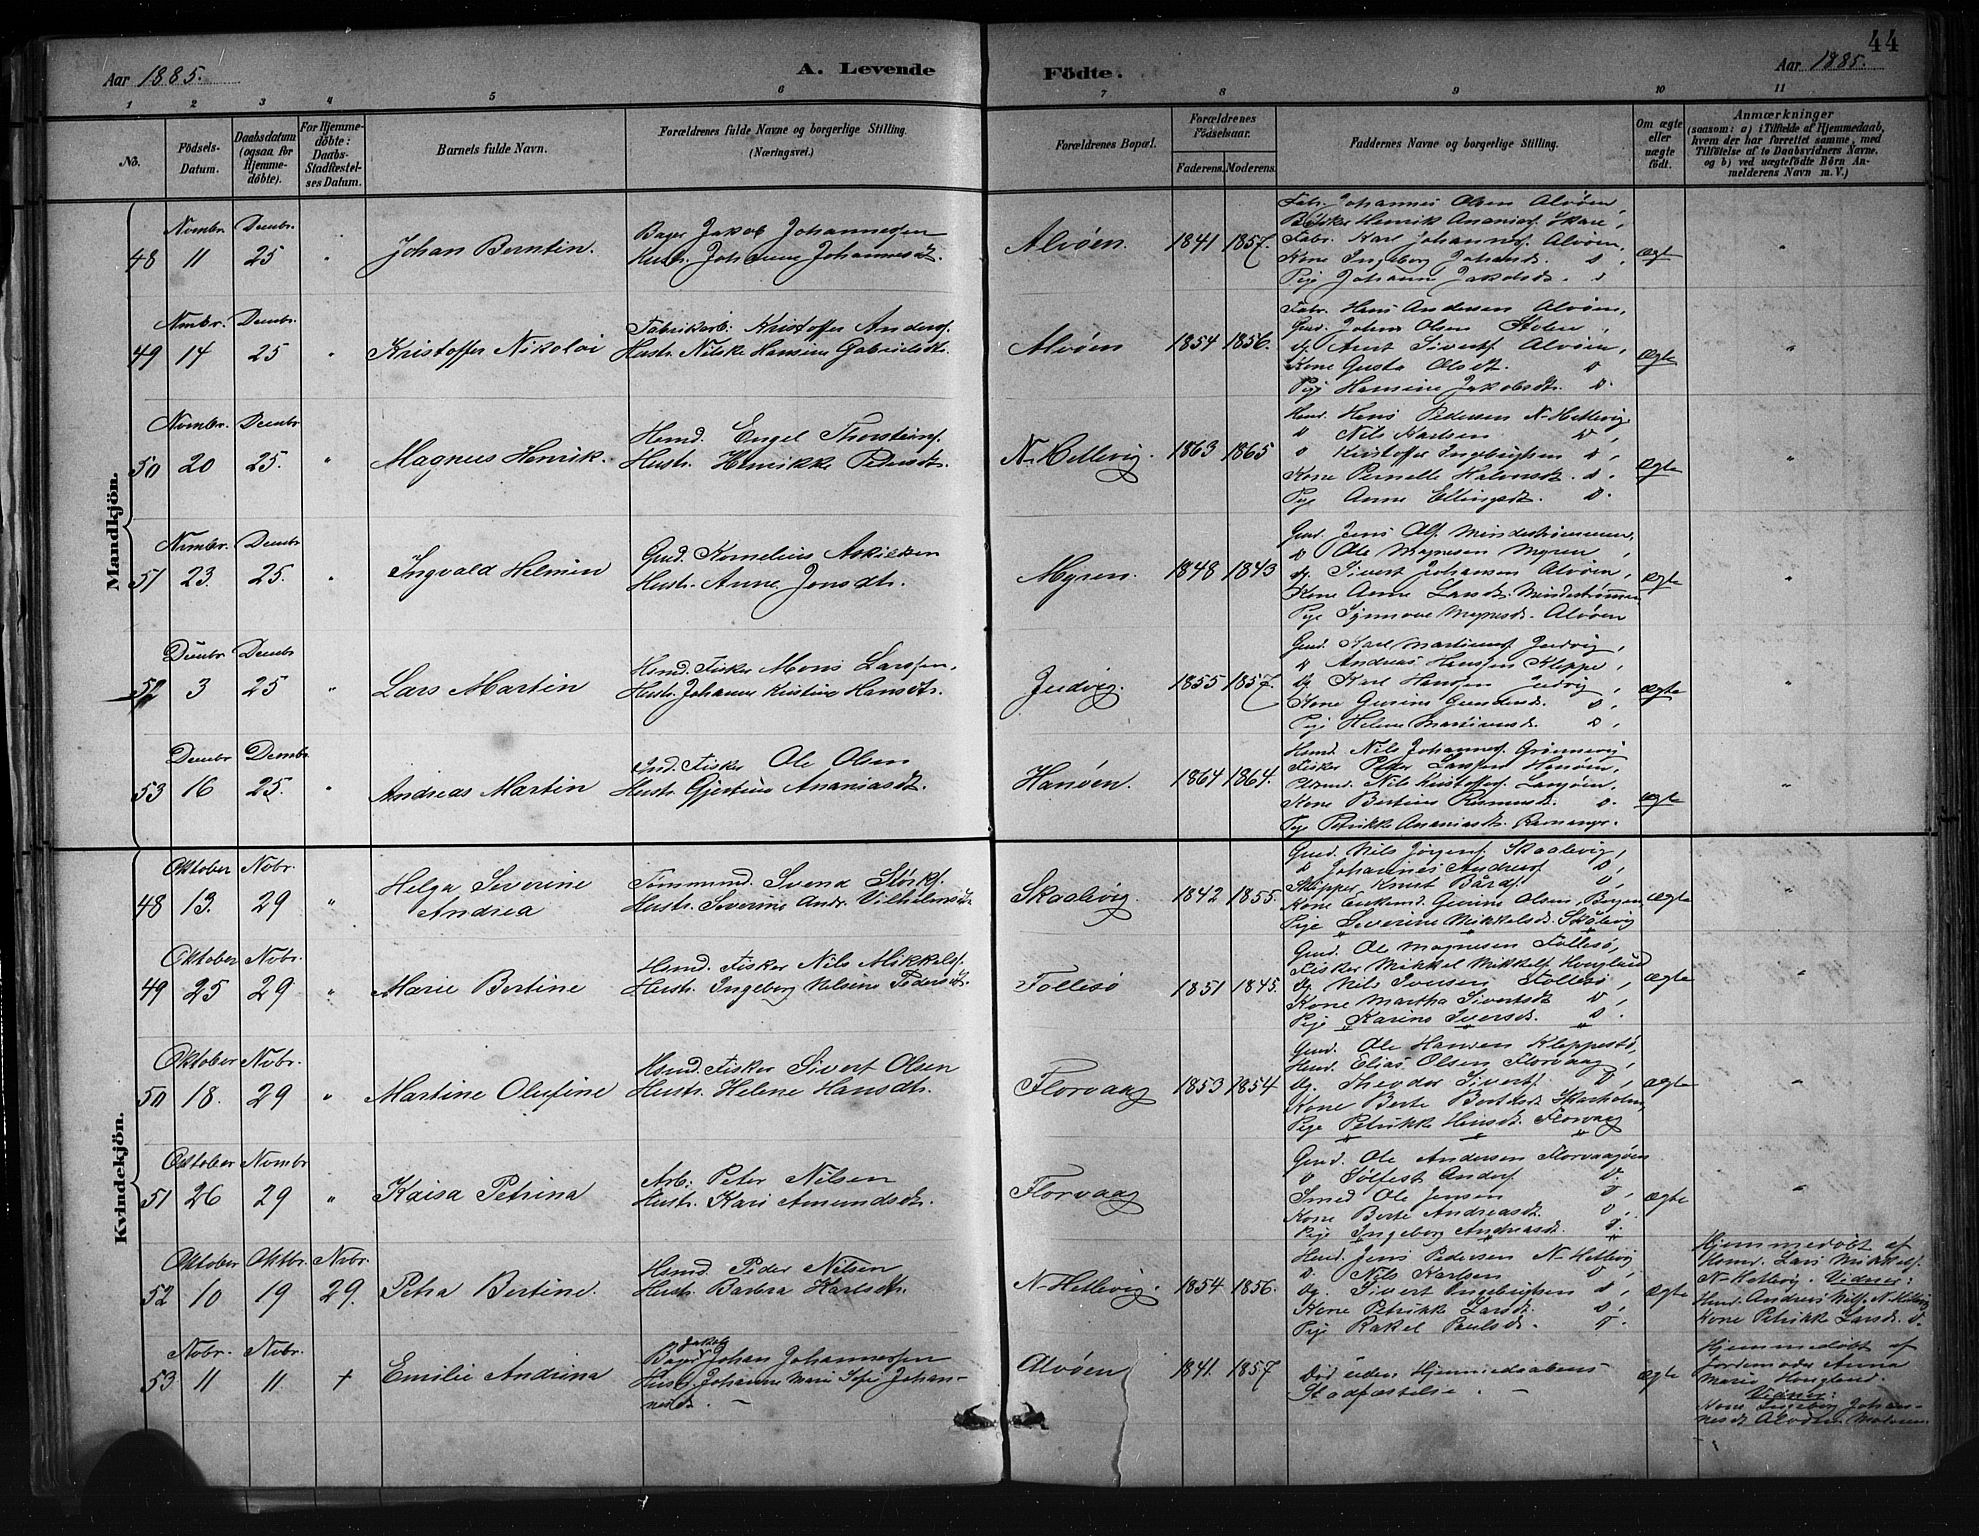 44
Aar 1885.
A. Levende Födte.
Aar 1885.
1 2 3 4 5 6 7 8 9 10 11
No.
Födsels-Datum.
Daabsdatum (ogsaa for Hjemme-döbte).
For Hjemme-döbte: Daabs-Stadfæstel-ses Datum.
Barnets fulde Navn.
Forældrenes fulde Navne og borgerlige Stilling.
(Næringsvei.)
Forældrenes Bopæl.
Forældrenes Födselsaar.
Faderens. Moderens.
Faddernes Navne og borgerlige Stilling.
Om ægte eller uægte födt.
Anmærkninger
(saasom: a) i Tilfælde af Hjemmedaab,
hvem der har forrettet samme, med
Tilföielse af to Daabsvidners Navne,
og b) ved uægtefödte Börn An-
melderens Navn m. V.)
Mandkjön.
48
Novmbr. 11
Decmbr. 25
"
Johan Berntin.
Bager Jakob Johannessen
Hustr. Johanne Johannesdt.
Alvøen.
1841 1857.
Fabr. Johannes Olsen Alvøen,
Bødker Henrik Ananiasf. Skare,
Fabr. Karl Johannesf. Alvøen,
Kone Ingeborg Johansdt. d ,
Pige Johanne Jakobsdt. d
Ægte
"
49
Novmbr. 14
Decmbr. 25
"
Kristoffer Nikolai
Fabrikarb: Kristoffer Andersf.
Hustr. Nilske Hansine Gabrielsdt.
Alvøen
1854 1856.
Fabr. Hans Andersen Alvøen,
Gmd. Johns Olsen Stolen,
Ug. Arnt Sivertf. Alvøen,
Kone Gusta Olsdt. d
Pige Hansine Jakobsdt. d.
Ægte
"
50
Novmbr. 20
Decmbr 25.
"
Magnus Henrik.
Hsmd. Engel Thorsteinsf.
Hustr. Henrikke Pedersdt.
N-Hetlevig.
1863 1865
Hsmd. Hans Pedersen N-Hetlevig
d Nils Karlsen d ,
d Kristoffer Ingebrigtsen d ,
Kone Pernille Halvorsdt. d.
Pige Anne Ellingsdt. d.
Ægte
"
51
Novmbr. 23.
Decmbr 25.
"
Ingvald Helmin
Gmd. Kornelius Askildsen
Hustr. Anne Jonsdtr.
Myren.
1848 1843
Gmd. Jens Olsf. Mindestrømmen,
d Ole Magnesen Myren,
Ug. Sivert Johansen Alvøen,
Kone Anne Larsdt. Mindestrømmen
Pige Synnove Magnesdt. Alvøen
Ægte
"
52
Decmbr 3
Decmbr 25
"
Lars Martin
Hsmd. Fisker Mons Larssen,
Hustr. Johanne Kristine Hansdtr.
Judvig.
1855 1857.
Gmd. Karl Martinusf. Judvig,
d Andreas Hansen Kleppe,
Ug Karl Hansen Judvig,
Kone Gurine d ,
Pige Helene Martinusdt. d ,
Ægte
"
53
Decmbr 16
Decmbr. 25.
"
Andreas Martin
Ind. Fisker Ole Olsen
Hustr. Gjertine Ananiasdt.
Hanøen.
1864 1864.
Hsmd. Nils Johannesf. Grønnevig
Fisker Peder Larssen Hanøen,
Nils Kristoffersf. Langøen,
Kone Bertine Rasmusdt. d.
Pige Petrikke Ananiasdt. Ravnanger.
Ægte
"
Kvindekjön.
48
Oktober 13.
Nobr. 29
"
Helga Severine
Andrea
Tømmermd. Svend Størksf.
Hustr. Severine Andr. Vilhelmsdt.
Skaalevig.
1842 1855.
Gmd. Nils Jørgenf. Skaalevig,
d Johannes Andreasf. d,
Skipper Knut Bårdsf. d,
Kone Gurine Olsen, Bergen,
Pige Severine Mikkelsdt. Skålevig
Ægte
"
49
Oktober 25
Nobr. 29
"
Marie Bertine
Hsmd. Fisker Nils Mikkelsf.
Hustr. Ingeborg Nilsine Pedersdt.
Follesø
1851 1845.
Gmd. Ole Magnesen Follesø,
Fisker Mikkel Mikkelsf. Hougland
Ug Nils Iversen Follesø,
Kone Martha Sivertsdt d ,
Pige Karine Iversdt. d .
Ægte
"
50
Oktober 18.
Nobr. 29
"
Martine Olufine
Hsmd. Fisker Sivert Olsen
Hustr. Helene Hansdtr.
Florvaag
1853 1854
Gmd. Ole Hansen Kleppestø,
Hsmd. Elias Olsen Florvaag,
Ug. Theodor Sivertf. d ,
Kone Berte Bertesdt. Skarholm,
Pige Petrikke Hansdt. Florvaag
Ægte
"
51
Oktober 26
Novmbr 29
"
Kaisa Petrina
Arb: Peter Nilsen
Hustr. Kari Amundsdtr.
Florvaag
Gmd. Ole Andersen Florvaagøen
d Sølfest Andersf d.
Smed Ole Jensen d,
Kone Berte Andreasdt d ,
Pige Ingeborg Andreasdt. d.
Ægte
"
52
Oktober 10
Oktbr. 19
Nobr. 29.
Petra Bertine.
Hsmd. Peder Nilsen
Hustr. Barbra Karlsdtr.
N-Hetlevig.
1854 1856.
Hsmd. Jens Pedersen N-Hetlevig
d. Nils Karlsen d ,
Ug. Sivert Ingebrigtsen d ,
Kone Petrikke Larsdt. d ,
Pige Rakel Paulsdt. d.
Ægte
Hjemmedøbt af
Hsmd. Lars Mikkelsf.
N-Hetlevig. Vidner:
Hsmd. Andreas Nilsf. N-Hetlevig
Kone Petrikke Larsdt. d.
53
Nobr. 11
Nobr. 11.
+
Emilie Andrina
Jakob
Bager Johan Johannessen
Hustr. Johanne Marie Sofie Johan-
nesdt. —
Alvøen
1841. 1857
Død uden Hjemmedaabens
Stadfæstelse. —
Ægte
Hjemmedøbt af
Jordemoder Anna
Marie Hougland.
Vidner:
Kone Ingeborg Johan-
nesdt Alvøen. Moderen.